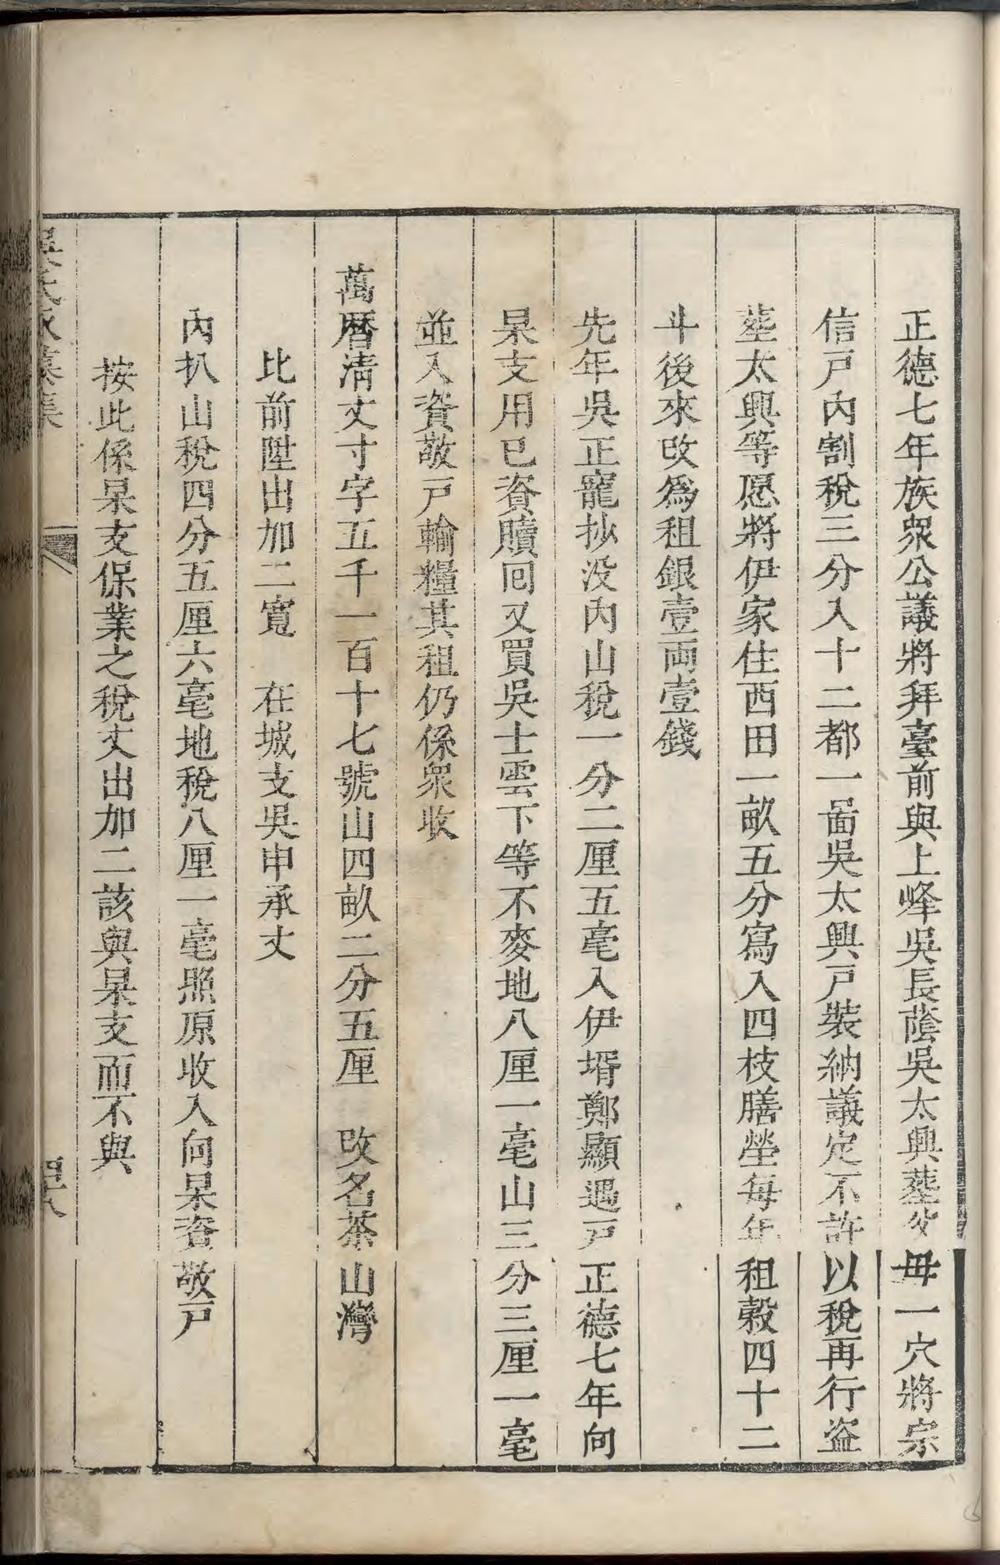 正德七年族衆公議將拜臺前與上峰吳長蔭吳太興塟父毋一穴將宗
信戸內割稅三分入十二都一啚吳太興戸裝納議定不許以稅再行盗
塟太興等愿將伊家住西田一畝五分寫入四枝膳塋每年租穀四十二
斗後來改爲租銀壹両壹錢
先年吳正寵抄没內山稅一分二厘五毫入伊壻鄭顯遇戸正德七年向
杲支用已資贖囘又買吳士雲下等不麥地八厘一毫山三分三厘一毫
並入資敬戸輸糧其租仍係衆收
萬曆清丈寸字五千一百十七號山四畝二分五厘 改名茶山灣
比前陞出加二寬 在城支吳申承丈
內扒山稅四分五厘六毫地稅八厘一毫照原收入向杲資敬戸
按此係杲支保業之稅丈出加二該與杲支而不與